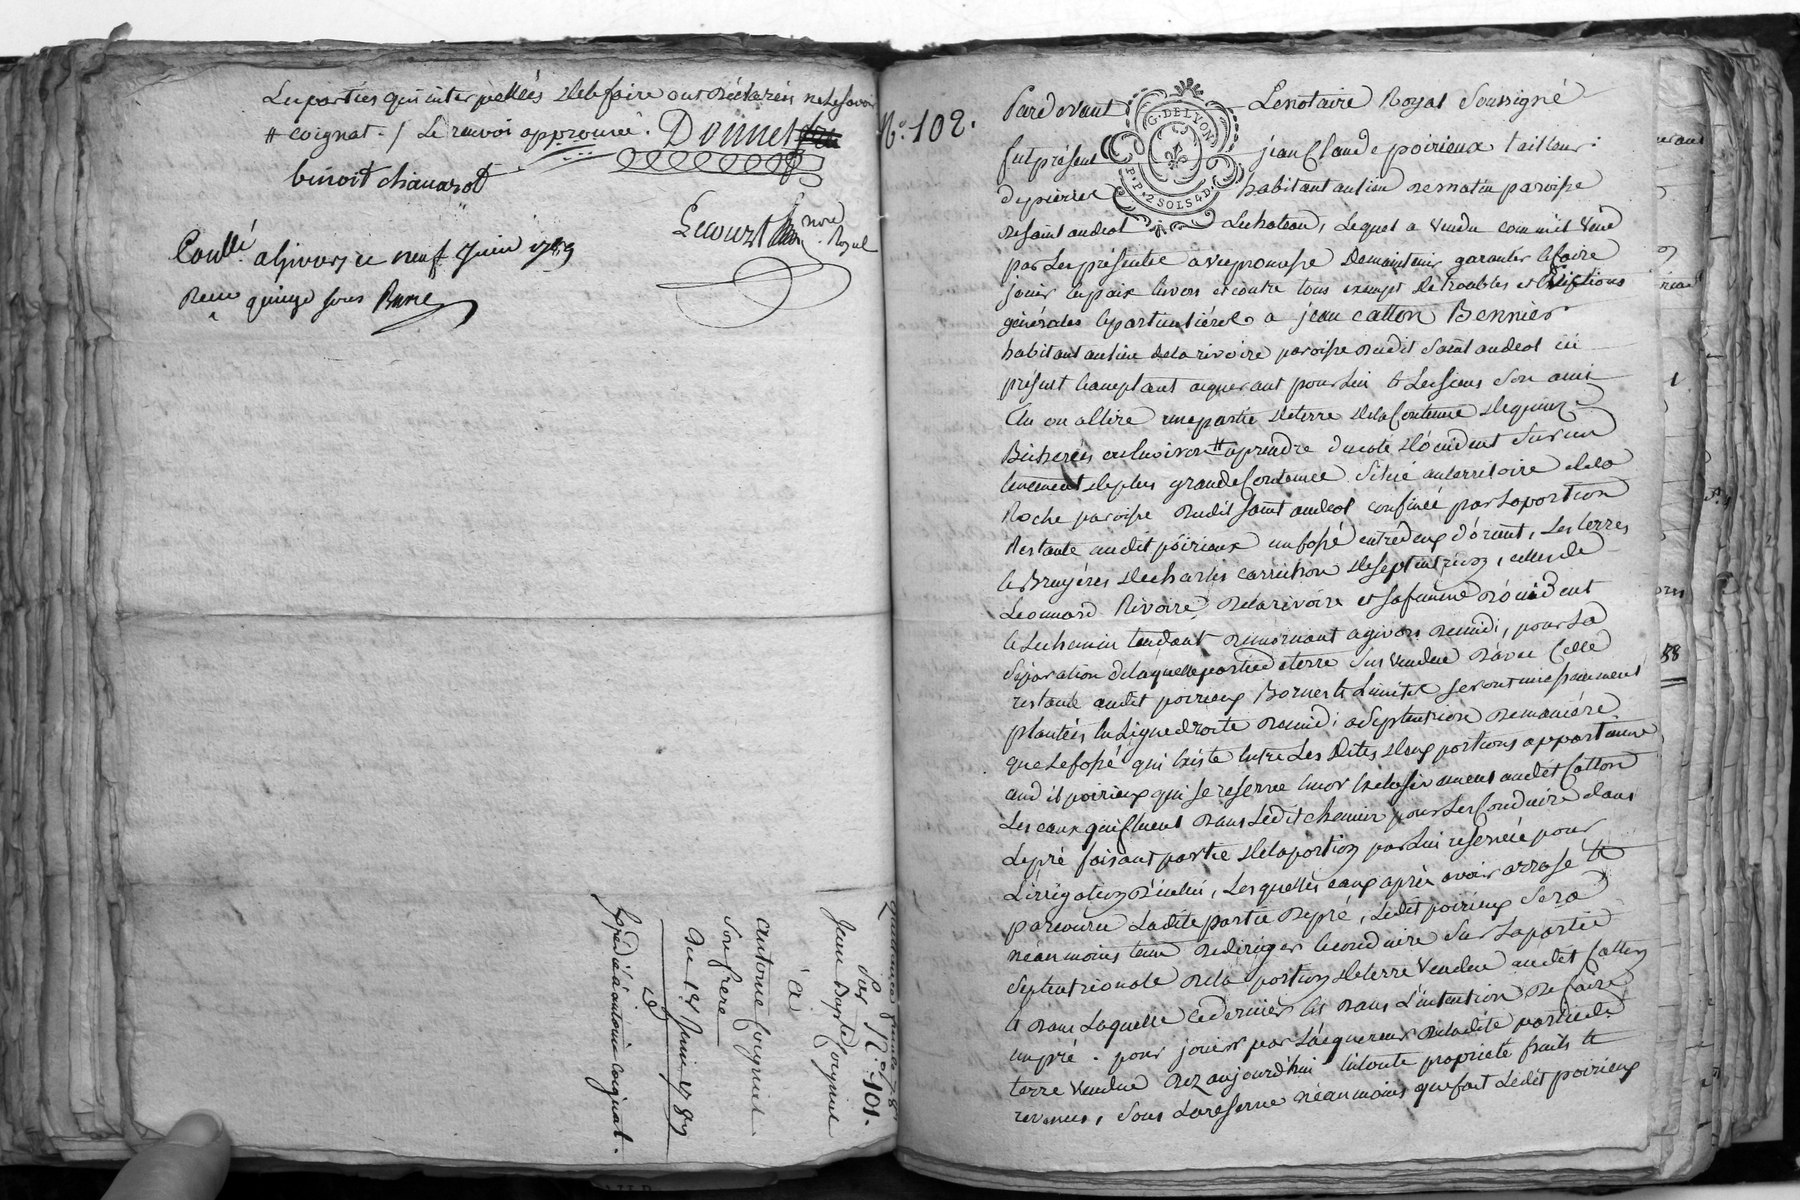 Les parties qui interpellées de le faire ont déclaré ne le savoir
# coignat ./ Le renvoi approuvé. Donnet
benoit chavarot
Lecourt
no.re Royal
Conllé a Givors ce neuf Juin 1789
Recu quinze sous
Par N.o 101.
Jean Bapt.e Coignat
à
Antoine Coignat
Son frere
Du 1.er Juin 1789
Expedié à antoine Coignat.
N.o 102.
Pardevant Le notaire Royal Soussigné
fut présent jean Claude poirieux tailleur
de pierre habitant au lieu de matin paroisse
de saint andeol Le chateau, Lequel a vendu comme il vend
par Les présentes avec promesse de maintenir garantir le faire
jouir en paix envers et contre tous exempt de troubles et évictions
générales et particulières a jean catton Bennier
habitant au lieu de la rivoire paroisse dudit saint andeol ici
présent acceptant aquerant pour lui et Les siens Son ami
Elu ou a Elire une partie de terre de la Contenue de quinze
Bicherées ou Environ # aprendre du coté d'occident Sur un
tenement de plus grande Contenue Situé au territoire de la
Roche paroisse dudit saint andeol confinée par La portion
Restante audit poirieux un fossé entre deux d'orient, Les terres
et Bruyéres de charles carrichon de septentrion, celles de
Leonnard Rivoire de la rivoire et sa femme d'occident
et Le chemin tendant de mornant a givors de midi, pour La
Séparation de laquelle partie de terre Sus vendue d'avec Celle
restante audit poirieux Bornes et Limites seront incessamment
plantées En Ligne droite de midi a Septentrion de manière
que Le fossé qui Existe Entre Les dites deux portions appartienne
audit poirieux qui se reserve Encor Exclusivement audit Catton
Les eaux qui fluent dans Ledit chemin pour Les Conduire dans
Le pré faisant partie de la portion par Lui reservée pour
L'irrigation d'icelui, Lesquelles eaux après avoir arrosé et
parcouru Ladite partie de pré, Ledit poirieux Sera
néanmoins tenu de diriger et conduire Sur La partie
Septentrionale de la portion de terre Vendue audit Catton
et dans Laquelle ce dernier Est dans L'intention de faire
un pré. pour jouir par L'acquereur de ladite partie de
terre Vendue dez aujourd'hui En toute proprieté fruits et
revenus, Sous La reserve néanmoins que fait Ledit poirieux
G. DE LYON
P.P. 2 SOLS 4 D.
58